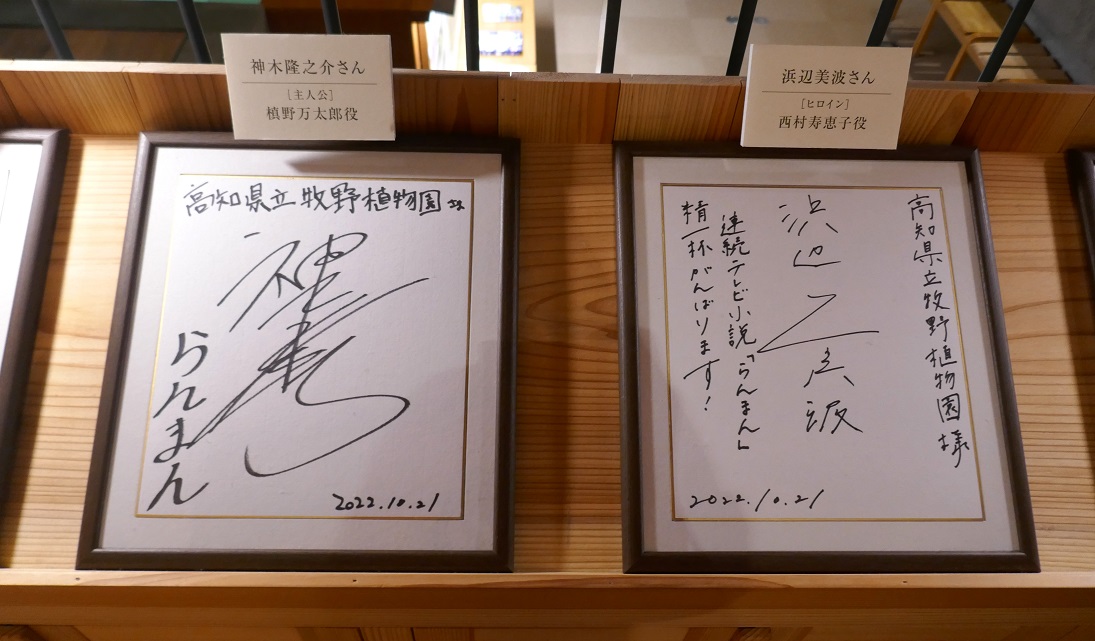 神木隆之介さん
[主人公]
槙野万太郎役
高知県立牧野植物園さま
らんまん
2022.10.21
浜辺美波さん
[ヒロイン]
西村寿恵子役
高知県立牧野植物園様
浜辺美波
連続テレビ小説「らんまん」
精一杯がんばります!
2022.10.21